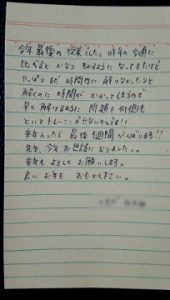 今年最後の授業でした。昨年の今頃に
比べるとかなり わかるように なってきたけど
やっぱり まだ 時間内に 解けなかったり
解くのに 時間が かかってしまうので
早く 解けるように 問題を 何個も
といて トレーニングせないかんな!!
来年入ったら 最後 1週間 がんばります!!
先生、今年 お世話に なりました。
来年も よろしく お願いします。
良い お年を おむかえ下さい。